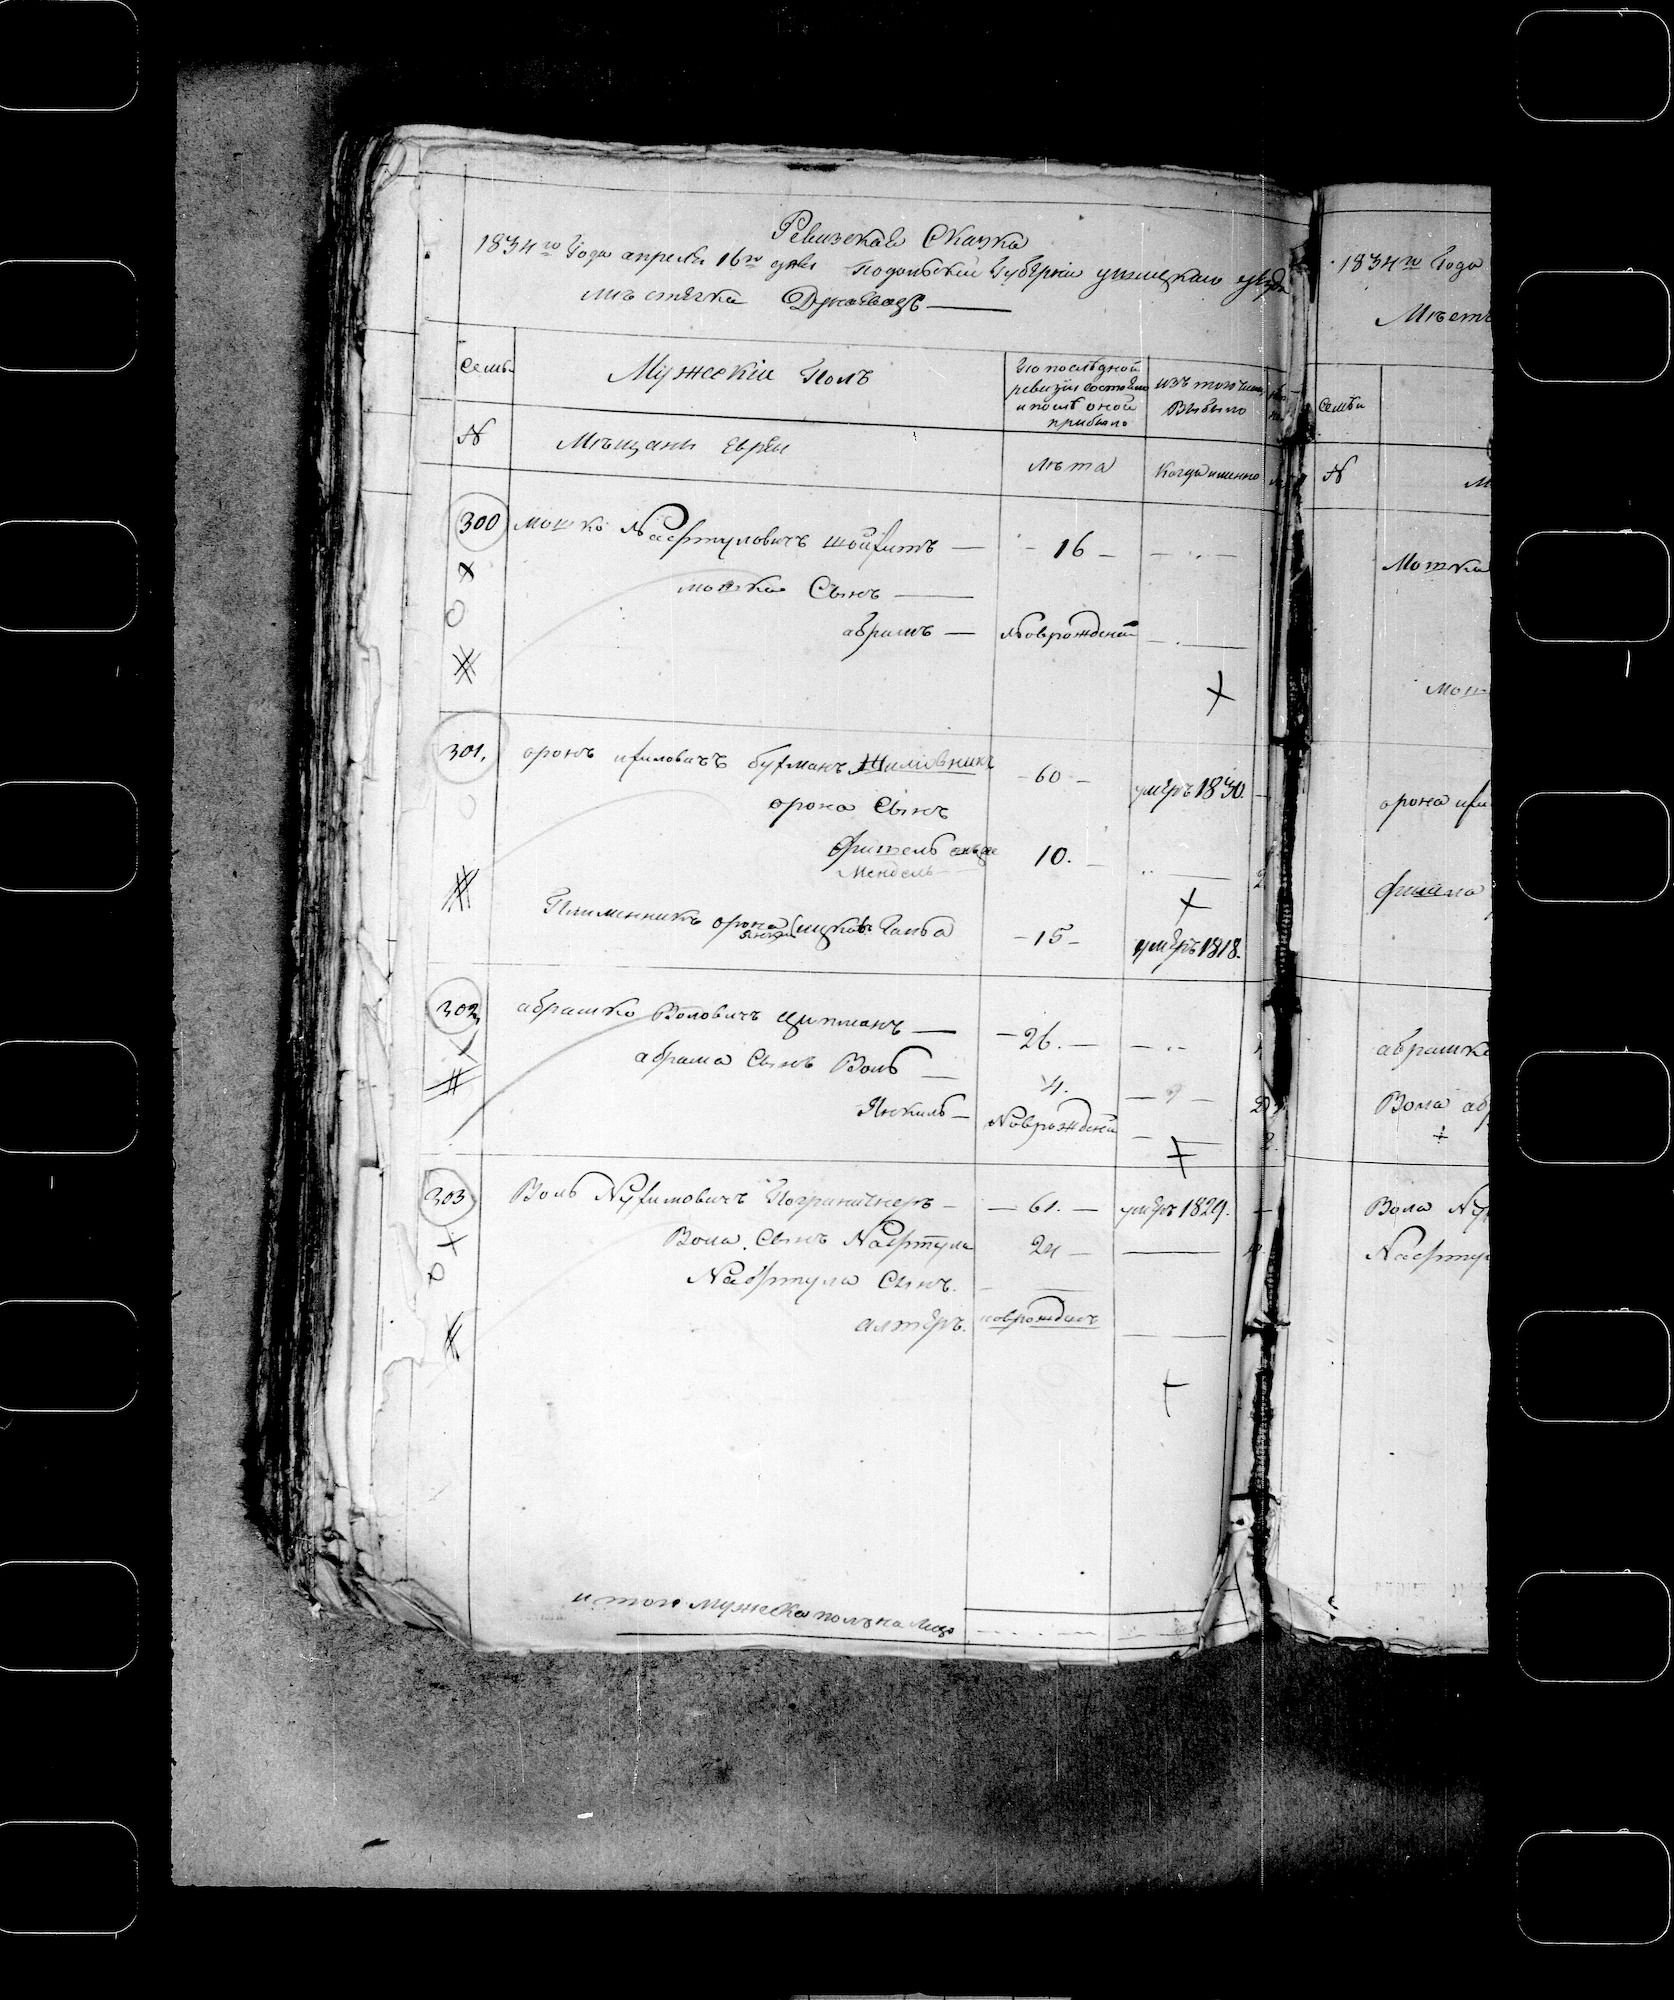 Ревизская Сказка
1834го Года апреля 16го дня Подольской Губерніи ушицкаго уезда
мѣстечка Дунаевецъ
Семьи
Мужескій Полъ
По послѣдной
ревизіи состояло
и послѣ оной
прибыло
изъ того числа
Выбыло
№
Мѣщани евреи
Лѣта
Когда именно
300 Мошко Нафтуловичъ 16
Мошка Сынъ
абрамъ Новрожденій
301. оронъ 60 умеръ 1830.
орона Сынъ
Фишель 10.
Мендель
Племенникъ орона 15 умеръ 1818.
302 абрашко Воловичъ Ципманъ 26.
абрама Сынъ Воль 4.
Янкиль Новрожденій
303 Воль Нухимовичъ 61. умеръ 1829.
Вола Сынъ Нафтула 24
Нафтула Сынъ
алтеръ. новрожденъ
итого мужеска пола на лицо
1834го Года
Мѣст
Семьи
№
М
Мошка
Мош
орона
Фишеля
абрашка
Вола
Вола
Нафту